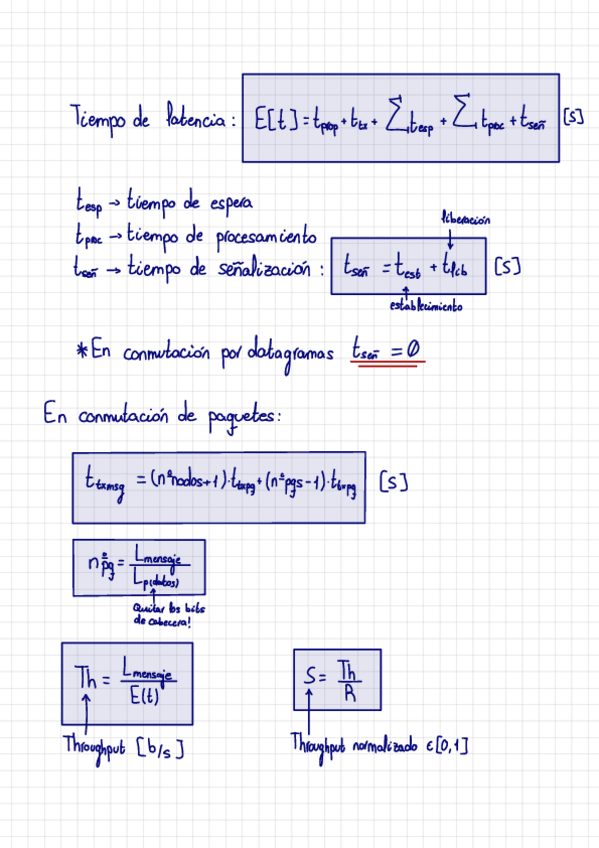 Tiempo de latencia: E[t] = t_prop + t_tx + ∑t_esp + ∑t_proc + t_señ [s]
t_esp → tiempo de espera
liberación
t_proc → tiempo de procesamiento
t_señ → tiempo de señalización: t_señ = t_est + t_lib [s]
establecimiento
*En conmutación por datagramas t_señ = 0
En conmutación de paquetes:
t_txmsg = (nºnodos+1)·t_txpq + (nºpqs-1)·t_txpq [s]
nºpq = L_mensaje / L_p(datos)
Quitar los bits
de cabecera!
Th = L_mensaje / E(t)
S = Th / R
Throughput [b/s]
Throughput normalizado ε[0,1]